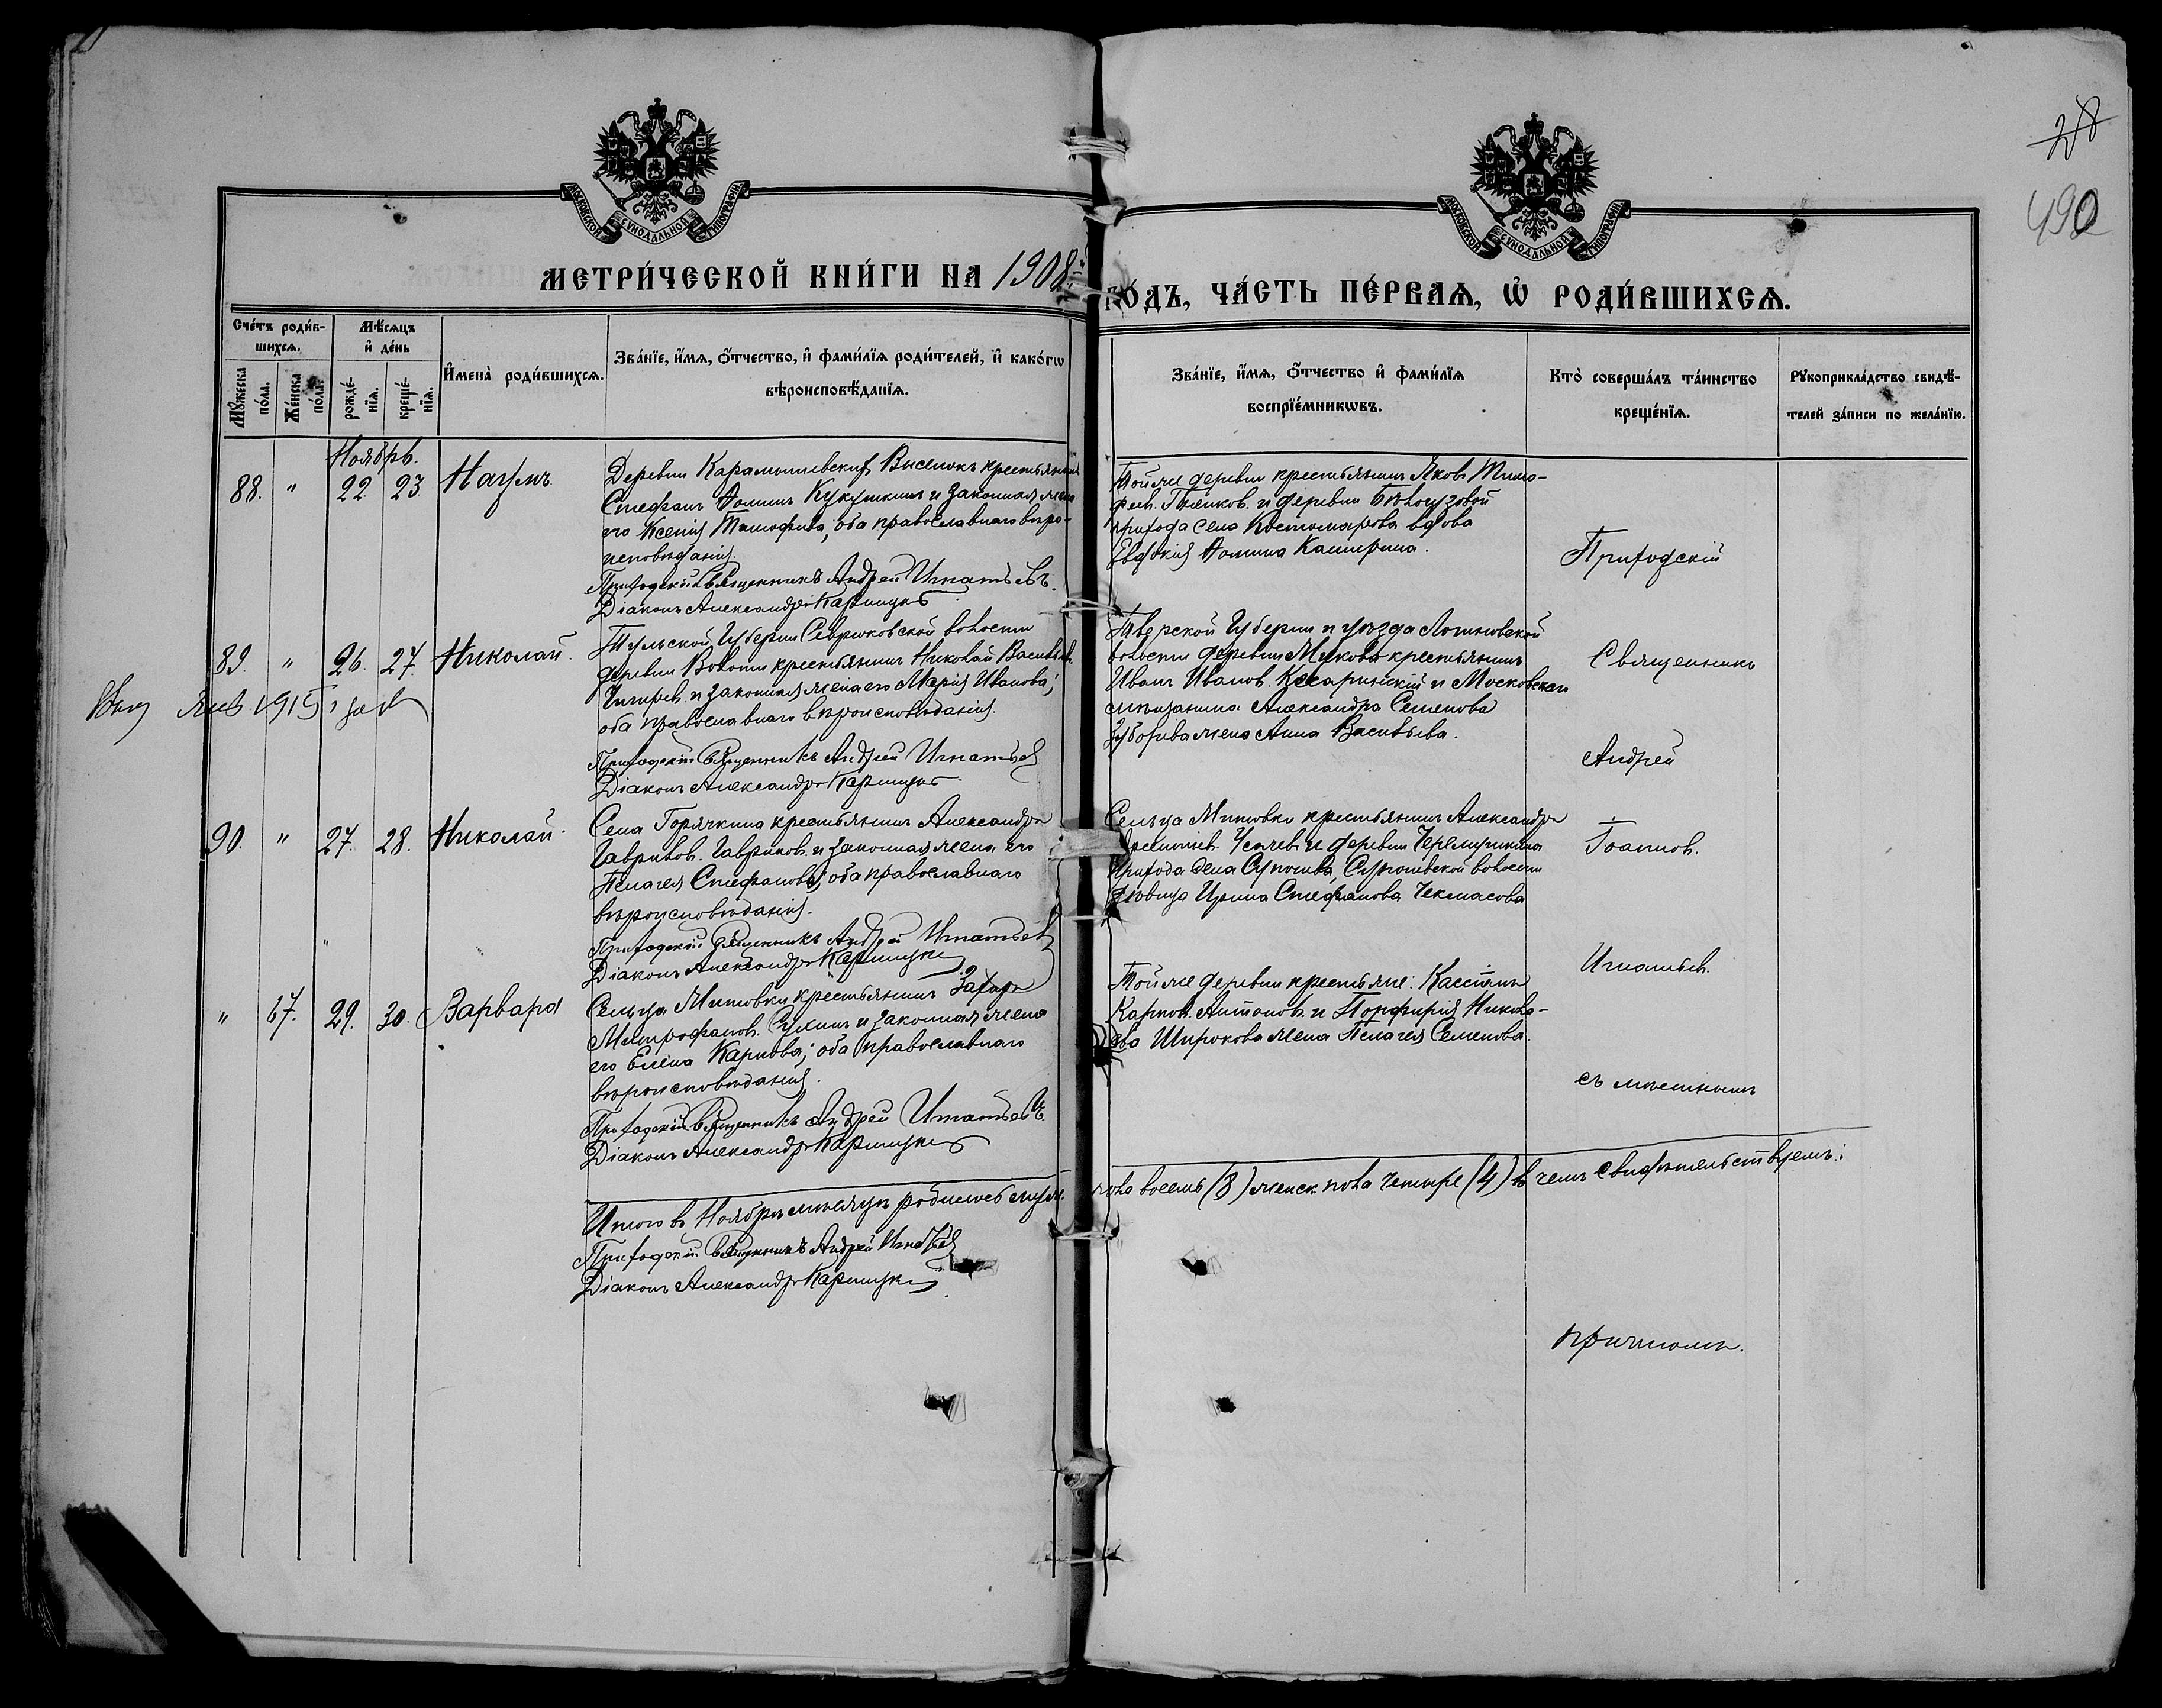 28
490
МОСКОВСКОЙ СУНОДАЛЬНОЙ ТИПОГРАФІИ
МОСКОВСКОЙ СУНОДАЛЬНОЙ ТИПОГРАФІИ
МЕТРИ́ЧЕСКОЙ КНИ́ГИ НА 1908 ГО́ДЪ, ЧА́СТЬ ПЕ́РВАѦ, Ѡ҆ РОДИ́ВШИХСѦ.
Сче́тъ роди́в-
шихсѧ.
Мꙋ́жеска по́ла.
Же́нска по́ла.
Мѣ́сѧцъ
и҆ де́нь
рожде́-
нїѧ.
креще́-
нїѧ.
И҆мена̀ роди́вшихсѧ.
Зва́нїе, и҆́мѧ, ѻ҆́тчество, и҆ фами́лїѧ роди́телей, и҆ како́гѡ
вѣроисповѣ́данїѧ.
Зва́нїе, и҆́мѧ, ѻ҆́тчество и҆ фами́лїѧ
воспрїе́мникѡвъ.
Кто̀ соверша́лъ та́инство
креще́нїѧ.
Рꙋкоприкла́дство свидѣ́-
телей за́писи по жела́нїю.
Ноябрь.
88. " 22. 23. Наумъ
Деревни Карамышевскихъ Выселокъ крестьянинъ
Стефанъ Ѳоминъ Кукушкинъ и законная жена
его Ксенія Тимофеева, оба православнаго вѣро-
исповѣданія.
Приходскій Священникъ Андрей Игнатьевъ.
Діаконъ Александръ Карницкій
Той же деревни крестьянинъ Яковъ Тимо-
феев. и деревни Бѣлоузовой
прихода села Костомарова вдова
Евдокія Ѳомина Каширина.
89. " 26. 27. Николай.
Тульской Губерніи Севрюковской волости
деревни Волоти крестьянинъ Николай Васильев.
и законная жена его Марія Иванова,
оба православнаго вѣроисповѣданія.
Приходскій Священникъ Андрей Игнатьев
Діаконъ Александръ Карницкій
Тверской Губерніи и уѣзда Логиновской
волости деревни крестьянинъ
Иванъ Иванов. и Московскаго
мѣщанина Александра Семенова
жена Анна Васильева.
1915 года
90. " 27. 28. Николай.
Села Горячкина крестьянинъ Александръ
Гаврилов. Гавриков. и законная жена его
Пелагея Стефанова, оба православнаго
вѣроисповѣданія.
Приходскій Священникъ Андрей Игнатьев
Діаконъ Александръ Карницкій
Сельца Митовки крестьянинъ Александръ
и деревни Черемушкина
прихода села волости
дѣвица Ирина Стефанова Чекмасова
" 67. 29. 30. Варвара
Сельца Митовки крестьянинъ Захаръ
Митрофанов. и законная жена
его Елена Карпова, оба православнаго
вѣроисповѣданія.
Приходскій Священникъ Андрей Игнатьевъ.
Діаконъ Александръ Карницкій
Той же деревни крестьяне: Кассіанъ
Карпов. Антонов. и Порфирія Никола-
ева Широкова жена Пелагея Семенова.
Приходскій
Священникъ
Андрей
Іоаннов.
Игнатьев.
съ мѣстнымъ
причтомъ.
Итого въ Ноябрѣ мѣсяцѣ родилось муж. пола восемь (8) женск. пола четыре (4) въ чемъ свидѣтельствуемъ:
Приходскій Священникъ Андрей Игнатьев
Діаконъ Александръ Карницкій